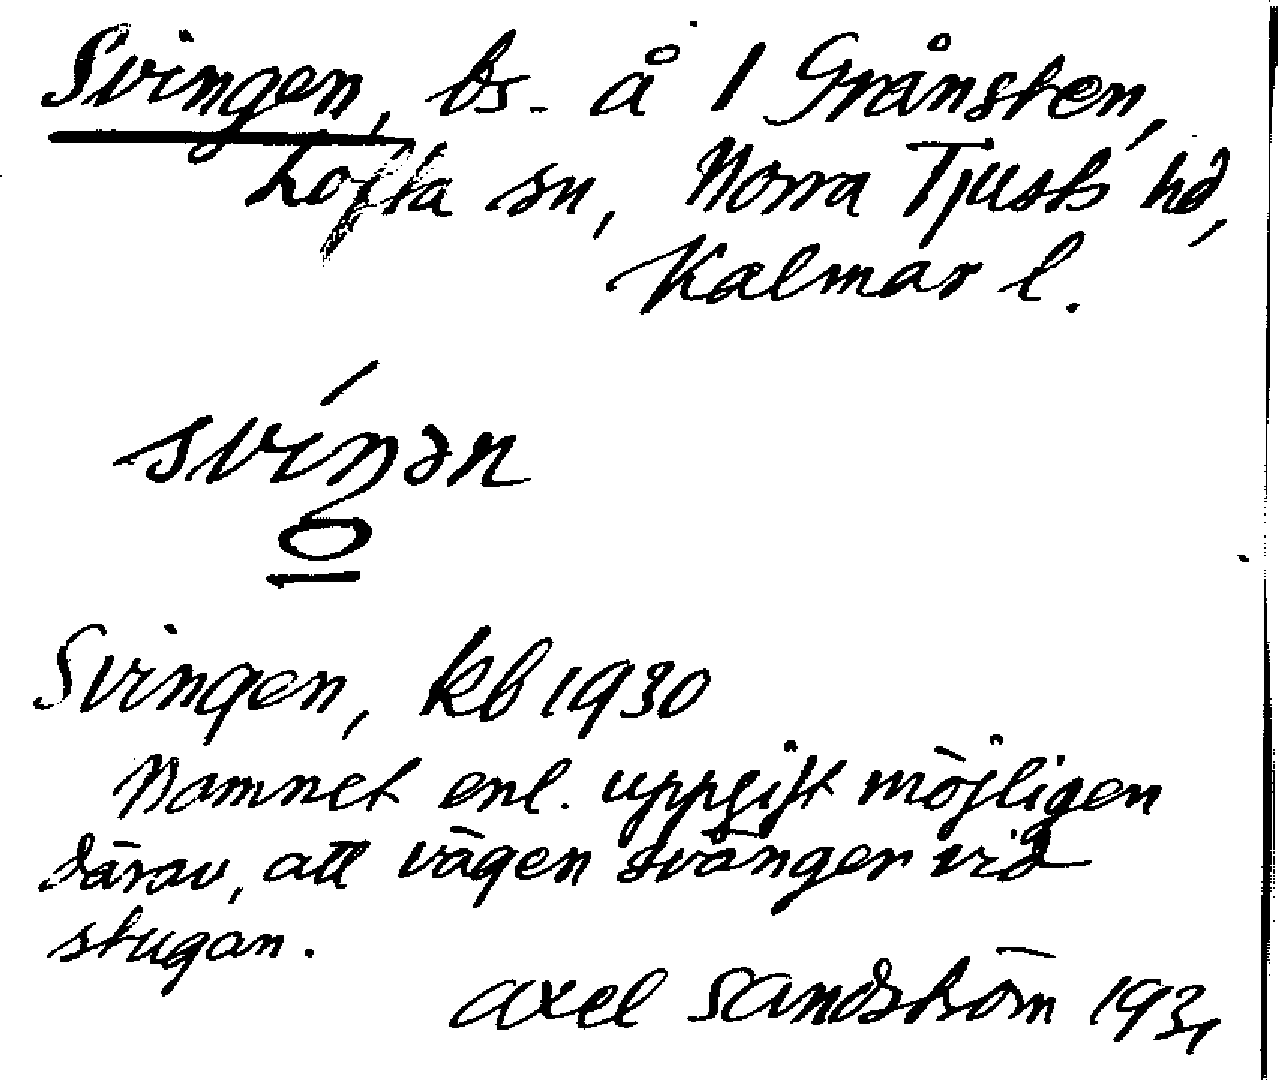 Svingen, bs. å 1 Grånsten,
Lofta sn, Norra Tjusts hd,
Kalmar l.
svíŋən
Svingen, kb 1930
Namnet enl. uppgift möjligen
därav, att vägen svänger vid
stugan.
Axel Sandström 1931